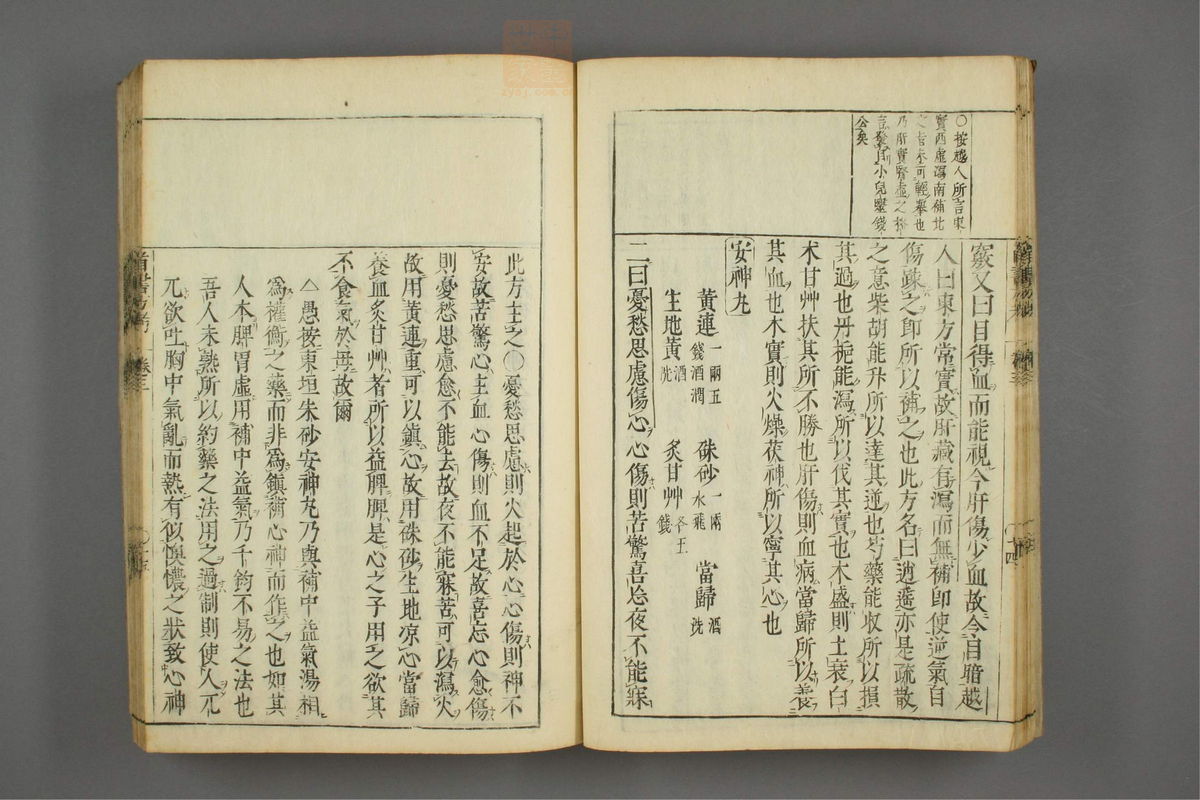 ○按越人所言東
實西虛瀉南補北
之旨未可輕舉也
乃肝實腎虛之
言發自小兒醫錢
公矣
竅又曰目得血而能視今肝傷少血故令目暗越
人曰東方常實故肝藏有瀉而無補即使逆氣自
傷疎之即所以補之也此方名曰逍遙亦是疏散
之意柴胡能升所以達其逆也芍藥能收所以損
其過也丹梔能瀉所以伐其實也木盛則土衰白
朮甘艸扶其所不勝也肝傷則血病當歸所以養
其血也木實則火燥茯神所以寧其心也
安神丸
黃連一兩五錢酒潤 硃砂一兩水飛 當歸酒洗
生地黃酒洗 炙甘艸各五錢
二曰憂愁思慮傷心心傷則苦驚喜忘夜不能寐
此方主之○憂愁思慮則火起於心心傷則神不
安故苦驚心主血心傷則血不足故喜忘心愈傷
則憂愁思慮愈不能去故夜不能寐苦可以瀉火
故用黃連重可以鎮心故用硃砂生地凉心當歸
養血炙甘艸者所以益脾脾是心之子用之欲其
不食氣於母故爾
△愚按東垣朱砂安神丸乃與補中益氣湯相
爲權衡之藥而非爲鎮補心神而作之也如其
人本脾胃虛用補中益氣乃千鈞不易之法也
吾人未熟所以約藥之法用之過制則使人兀
兀欲吐胸中氣亂而熱有似懊憹之狀致心神
卷三
十四
十五